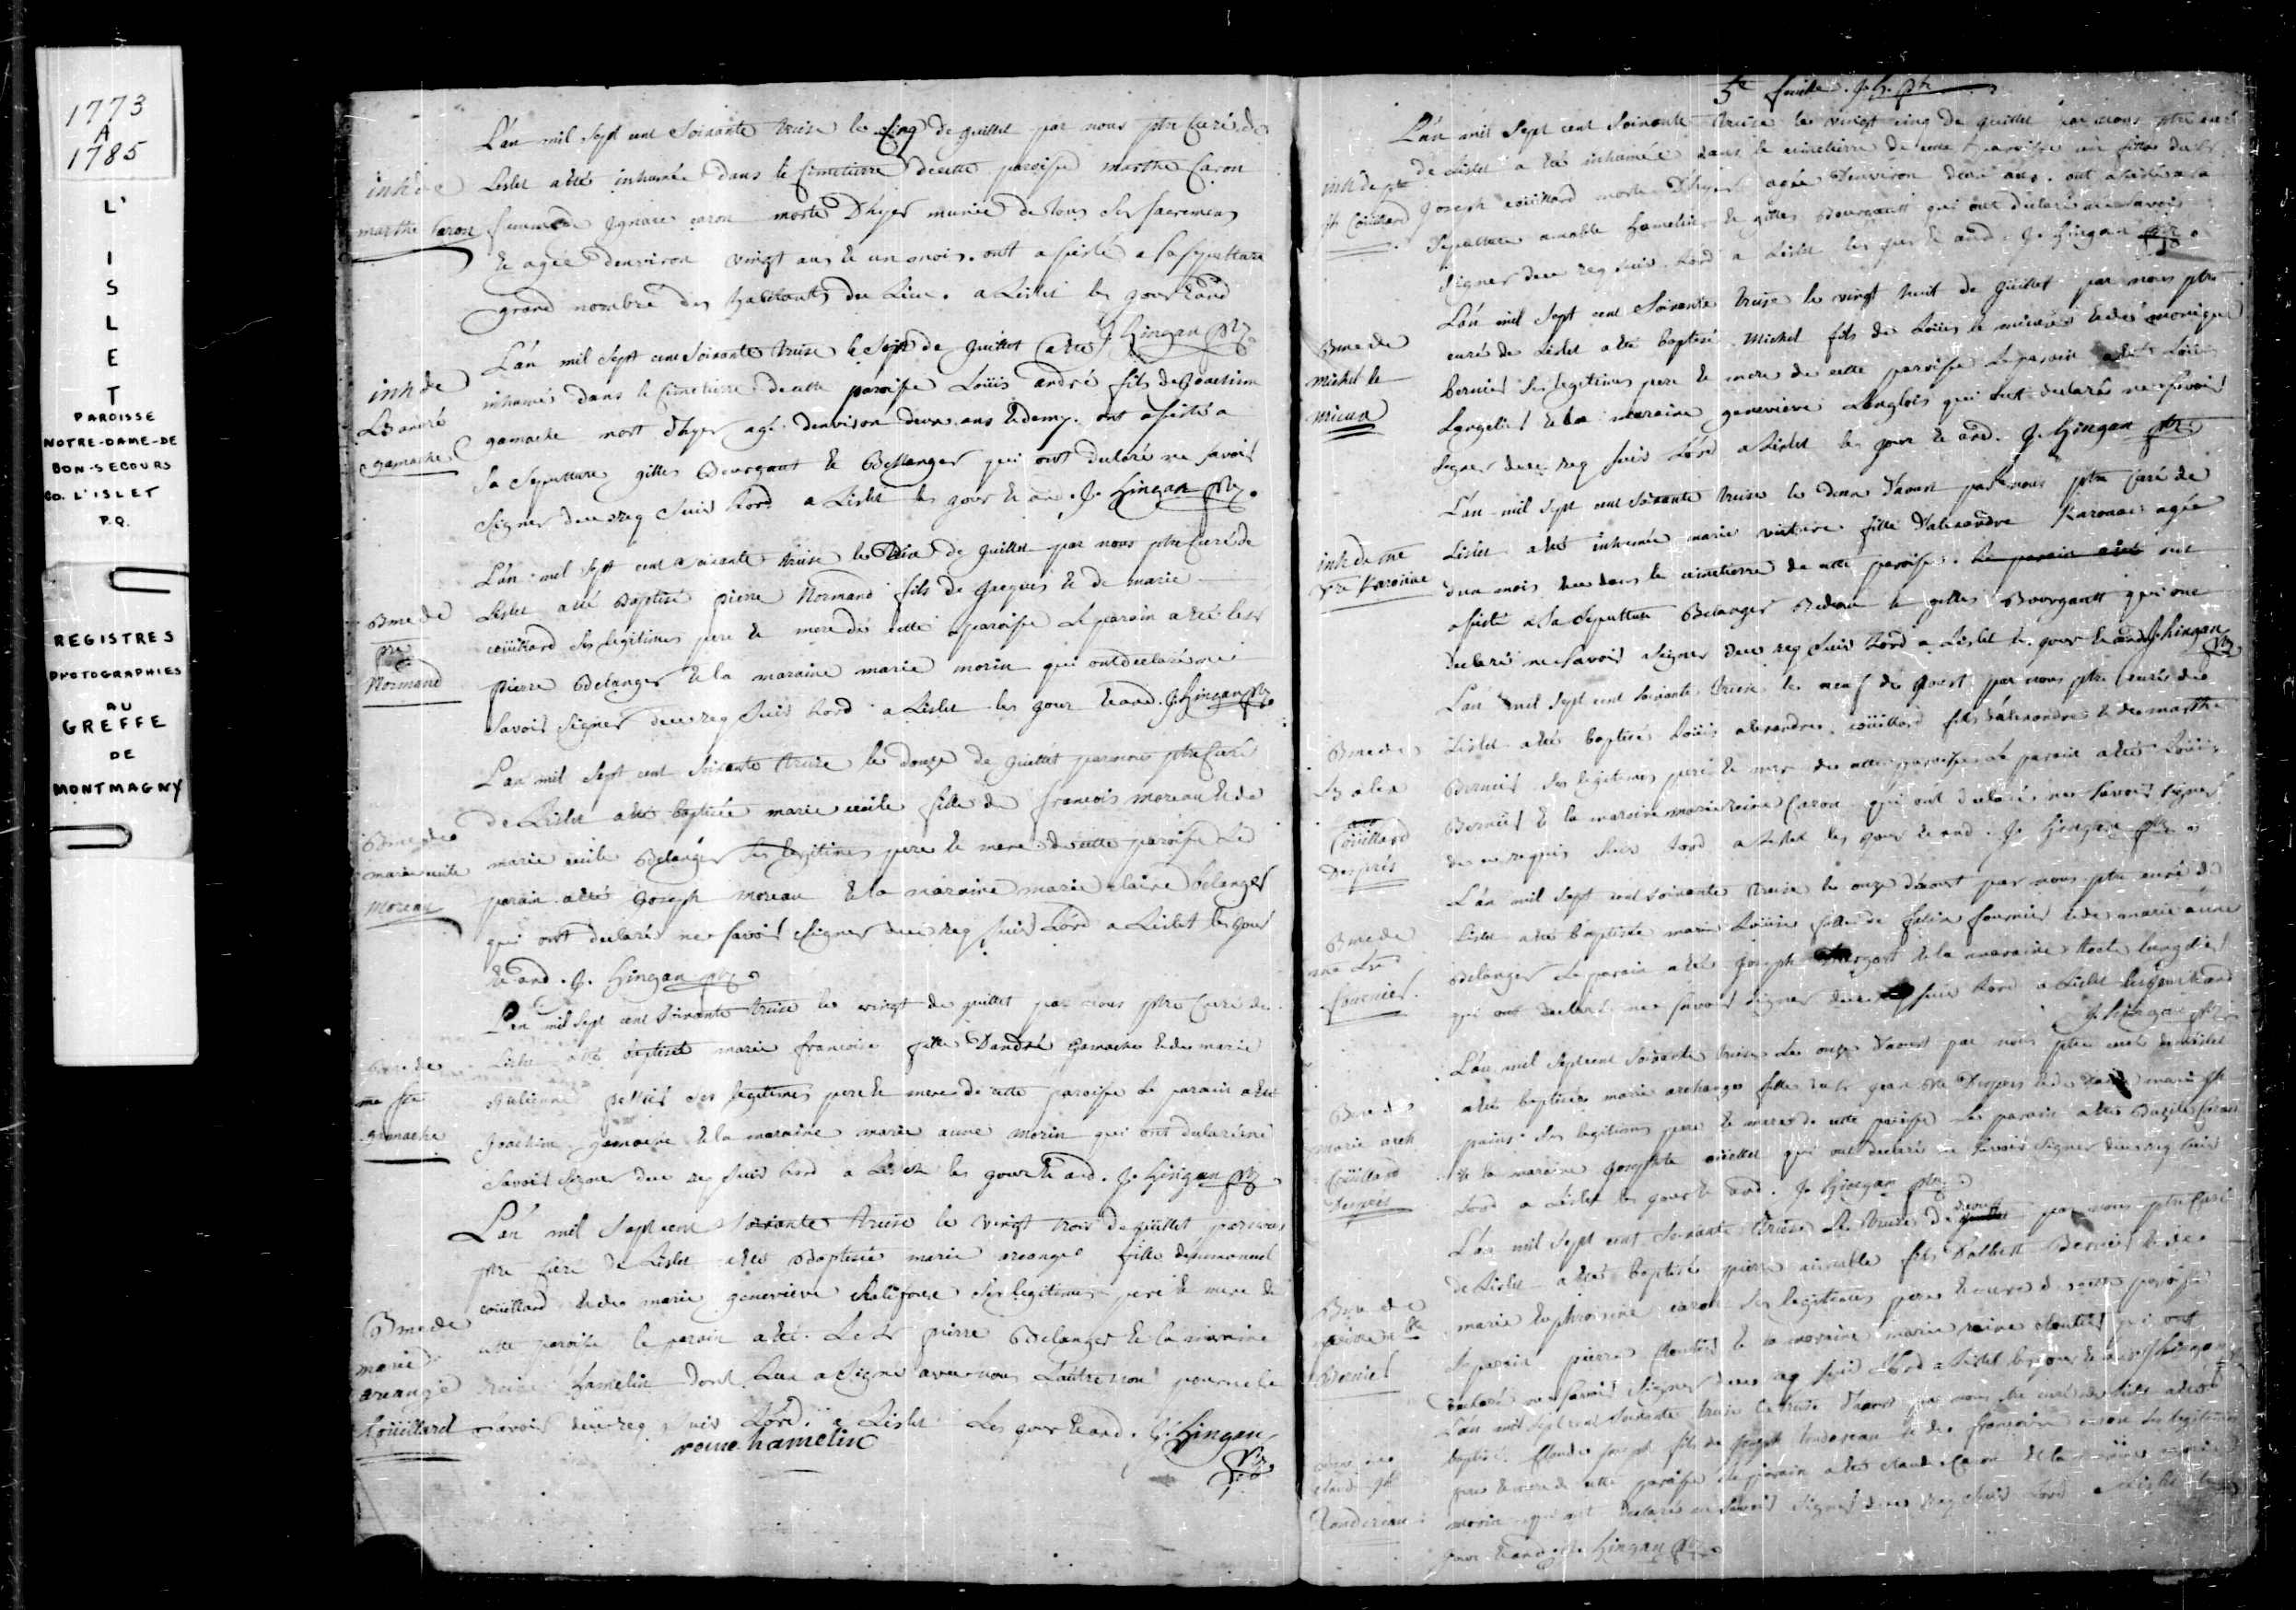 1773
A
1785
L'
I
S
L
E
T
PAROISSE
NOTRE-DAME-DE
BON-SECOURS
Co. L'ISLET
P.Q.
REGISTRES
PHOTOGRAPHIES
AU
GREFFE
DE
MONTMAGNY
L'an mil sept cent soixante treize le cinq de juillet par nous ptre curé de
inh de
marthe caron
Lislet a été inhumée dans le cimetiere de cette paroisse marthe Caron
femme de ignace caron morte d'hyer munie de tous ses sacremens
et agée denviron vingt ans et un mois. ont assisté a sa sepulture
grand nombre des habitants du lieu. a Lislet les jour et and
J. Hingan ptr
inh de
Ls andré
gamache
L'an mil sept cent soixante treize le sept de juillet a été
inhumé dans le cimetiere de cette paroisse Loüis andré fils de Joachim
gamache mort d'hyer agé denviron deux ans et demy. ont assisté a
sa sepulture gilles Bourgaut et Bellanger qui ont declaré ne savoir
signer de ce req suiv Lord a Lislet les jour et an. J. Hingan ptr
Bme de
pre
Normand
L'an mil sept cent soixante treize le dix de juillet par nous ptre curé de
Lislet a été baptisé pierre Normand fils de jacques et de marie
coüillard ses legitimes pere et mere de cette paroisse Le parain a été le sr
pierre Belanger et la maraine marie morin qui ont declaré ne
savoir signer de ce req suiv Lord a Lislet les jour et and. J. Hingan ptr
Bme de
marie cecile
moreau
L'an mil sept cent soixante treize le douze de juillet par nous ptre curé
de Lislet a été baptisée marie cecile fille de francois moreau et de
marie cecile Belanger ses legitimes pere et mere de cette paroisse Le
parain a été joseph moreau et la maraine marie claire belanger
qui ont declaré ne savoir signer de ce req suiv Lord a Lislet les jour
et and. J. Hingan ptr
Bme de
me fse
gamache
L'an mil sept cent soixante treize le vingt de juillet par nous ptre curé de
Lislet a été baptisée marie francoise fille Dandré Gamache et de marie
pellier ses legitimes pere et mere de cette paroisse Le parain a été
Joachim gamache et la maraine marie anne morin qui ont declaré ne
savoir signer de ce req suiv Lord a Lislet les jour et and. J. Hingan ptr
Bme de
marie
arcange
Coüillard
L'an mil sept cent soixante treize le vingt trois de juillet par nous
ptre curé de Lislet a été Baptisée marie arcange fille demmanuel
coüillard et de marie genevieve chalifoux ses legitimes pere et mere de
cette paroisse le parain a été Le sr pierre Belanger et la maraine
reine hamelin dont Lun a signé avec nous Lautre non pour ne le
savoir de ce req suiv Lord. a Lislet Les jour et and. J. Hingan
ptr
reine hamelin
5e feuille. J. H. ptr
inh de
js Coüillard
L'an mil sept cent soixante treize le vingt cinq de juillet par nous ptre curé
de Lislet a été inhumée dans le cimetiere de cette paroisse une fille du sr
Joseph coüillard morte d'hyer agée denviron deux ans. ont assisté a sa
sepulture amable hamelin et gilles Bourgault qui ont declaré ne savoir
signer de ce req suiv Lord a Lislet les jour et and. J. Hingan ptr
Bme de
Michel le
mieux
L'an mil sept cent soixante treize le vingt huit de juillet par nous ptre
curé de Lislet a été baptisé Michel fils de Loüis le mieux et de monique
bernier ses legitimes pere et mere de cette paroisse Le parain a été Loüis
Langelier et la maraine genevieve Langlois qui ont declaré ne savoir
signer de ce req suiv Lord a Lislet les jour et and. J. Hingan ptr
inh de me
L'an mil sept cent soixante treize le deux d'aoust par nous ptre curé de
Lislet a été inhumée marie victoire fille d'alexandre Karonac agée
dun mois dans le cimetiere de cette paroisse. ont
assisté a sa sepulture Belanger Bedeau et gilles Bourgault qui ont
declaré ne savoir signer de ce req suiv Lord a Lislet les jour et and J. Hingan
ptr
Bme de
Ls alex
Coüillard
Després
L'an mil sept cent soixante treize le neuf de aoust par nous ptre curé de
Lislet a été baptisé Loüis alexandre coüillard fils d'alexandre et de marthe
Bernier ses legitimes pere et mere de cette paroisse Le parain a été Loüis
Bernier et la maraine marie reine Caron qui ont declaré ne savoir signer
de ce requis suiv Lord a Lislet les jour et and. J. Hingan ptr
Bme de
fournier
L'an mil sept cent soixante treize le onze d'aoust par nous ptre curé de
Lislet a été baptisée marie Loüise fille de felix fournier et de marie anne
Belanger Le parain a été joseph et la maraine
qui ont declaré ne savoir signer de ce suiv Lord a Lislet les jour et and
J. Hingan ptr
Bme de
marie arch
Coüillard
Després
L'an mil sept cent soixante treize Le onze d'aoust par nous ptre curé de Lislet
a été baptisée marie archange fille du sr jean Bte Després et de dame marie
ses legitimes pere et mere de cette paroisse Le parain a été Bazile Caron
et la maraine josephte oüellet qui ont declaré ne savoir signer de ce req suiv
Lord a Lislet les jour et and. J. Hingan ptr
Bme de
Bernier
L'an mil sept cent soixante treize Le treize d'aoust par nous ptre curé
de Lislet a été baptisé pierre aimable fils d'albert Bernier et de
marie euphrosine caron ses legitimes pere et mere de cette paroisse
Le parain pierre cloutier et la maraine marie reine cloutier qui ont
declaré ne savoir signer de ce req suiv Lord a Lislet les jour et and J. Hingan
L'an mil sept cent soixante treize le treize d'aoust par nous ptre curé de Lislet a été
baptisé Claude joseph fils de joseph tondreau et de francoise caron ses legitimes
pere et mere de cette paroisse le parain a été claude Caron et la maraine
morin qui ont declaré ne savoir signer de ce req suiv Lord a Lislet les
jour et and J. Hingan ptr